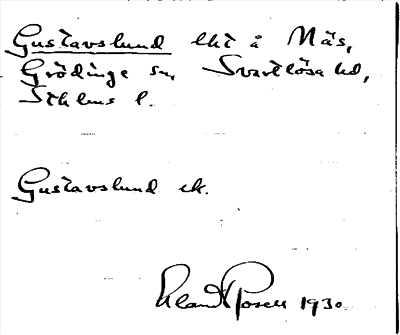 Gustavslund lht å Näs,
Grödinge sn, Svartlösa hd,
Sthlms l.
Gustavslund ek.
Roselll 1930